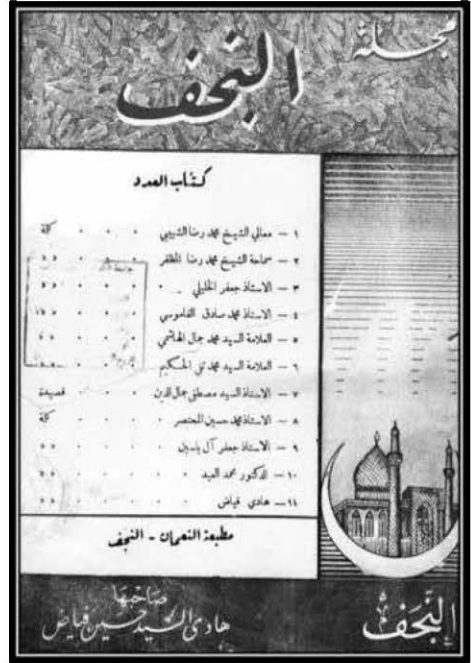 مجلة
النجف
كتاب العدد
١ – معالي الشيخ محمد رضا الشبيبي . . . كلمة
٢ – سماحة الشيخ محمد رضا المظفر . . . « «
٣ – الاستاذ جعفر الخليلي . . . . « «
٤ – الاستاذ محمد صادق القاموسي . . . « «
٥ – العلامة السيد محمد جمال الهاشمي . . . « «
٦ – العلامة السيد محمد تقي الحكيم . . . « «
٧ – الاستاذ السيد مصطفى جمال الدين . . . قصيدة
٨ – الاستاذ محمد حسين المحتصر . . . كلمة
٩ – الاستاذ جعفر آل ياسين . . . « «
١٠ – الدكتور محمد العيد . . . . « «
١١ – هادي فياض . . . . . « «
مطبعة النعمان – النجف
النجف
صاحبها
هادي السيد حسين فياض